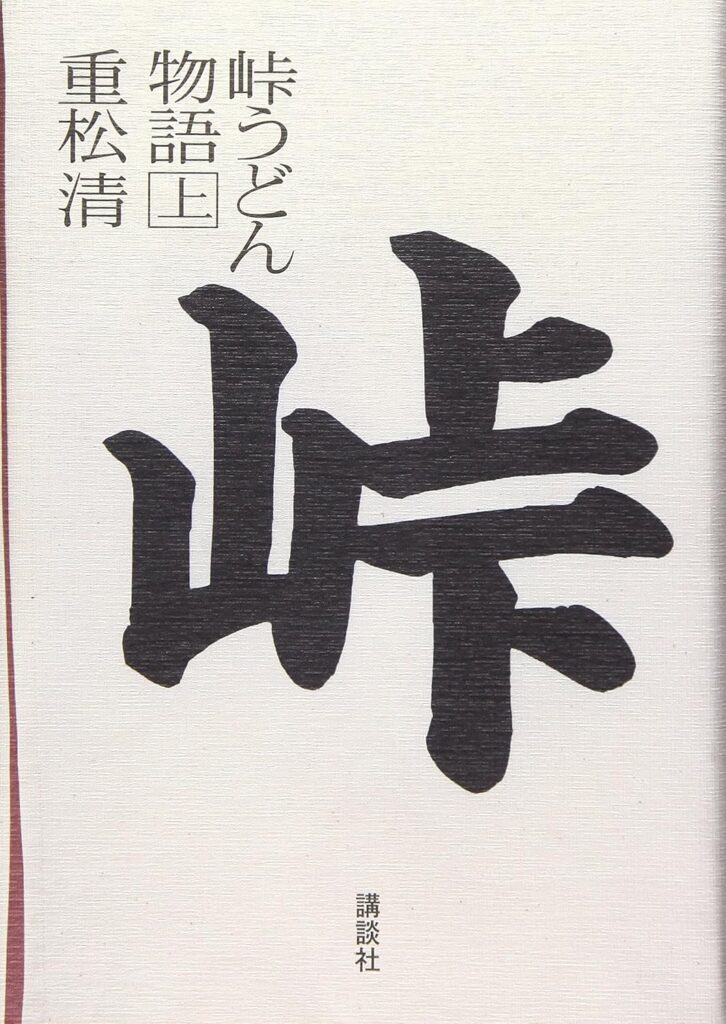 峠うどん
物語 上
重松清
峠
講談社